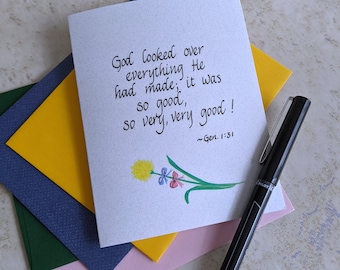 God looked over
everything He
had made; it was
so good,
so very, very good!
~Gen. 1:31